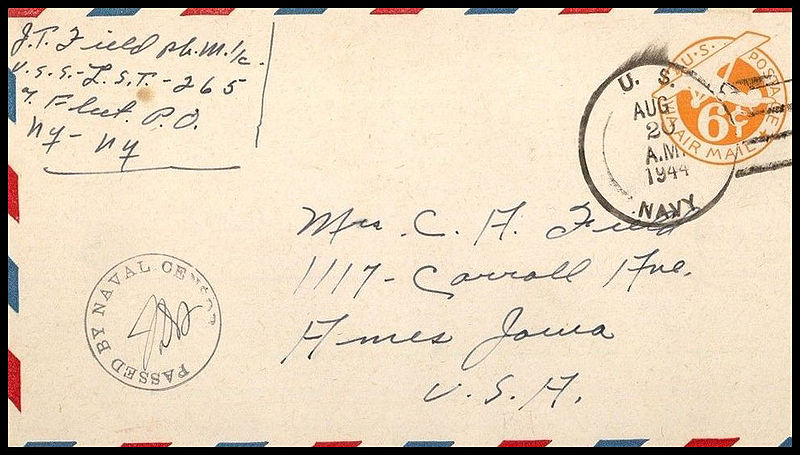 J.T. Field ph.M.1/c.
U.S.S.-L.S.T.-265
℅ Fleet. P.O.
ny- ny
U.S. POSTAGE
6¢
AIR MAIL
U. S.
AUG
20
A.M.
1944
NAVY
Mrs C. A. Field
1117- Carroll Ave.
Ames Iowa
U.S.A.
PASSED BY NAVAL CENSOR